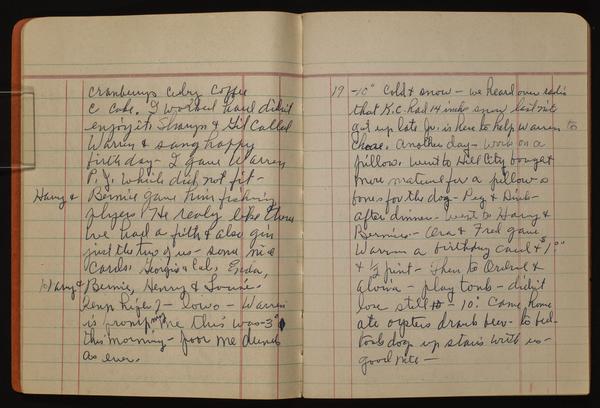 Cranberrys Celry Coffee
C Cake. I worked hard didn't
enjoy it. Sharys & Gil Called
Warren & sang happy
birthday - I gave Warren
P.J. which did not fit -
Harry & Bernie gave him fishing
plyers. He realy likes them
we had a fifth & also gin
just the two of us - some nice
Cards. Georgie & Ed,
Harry & Bernie, Henry & Louise.
Temp high 7 - low 0 - Warren
is prompting me this was -3°
this morning - poor me dumb
as ever.
19 -10° Cold & snow - we heard over radio
that K.C. had 14 inch snow last nite
got up late Jr. is here to help Warren to
chore. Another day - work on a
pillow. went to Hill City bought
more material for a pillow &
bones for the dog - Peg & Dick
after dinner - went to Harry &
Bernies - Ora & Fred gave
Warren a birthday card & $1.00
& ½ pint - then to &
Alvina - play - didn't
lose still - 10° Came home
ate oysters drank beer - to bed
took dog up stairs with us -
good nite -